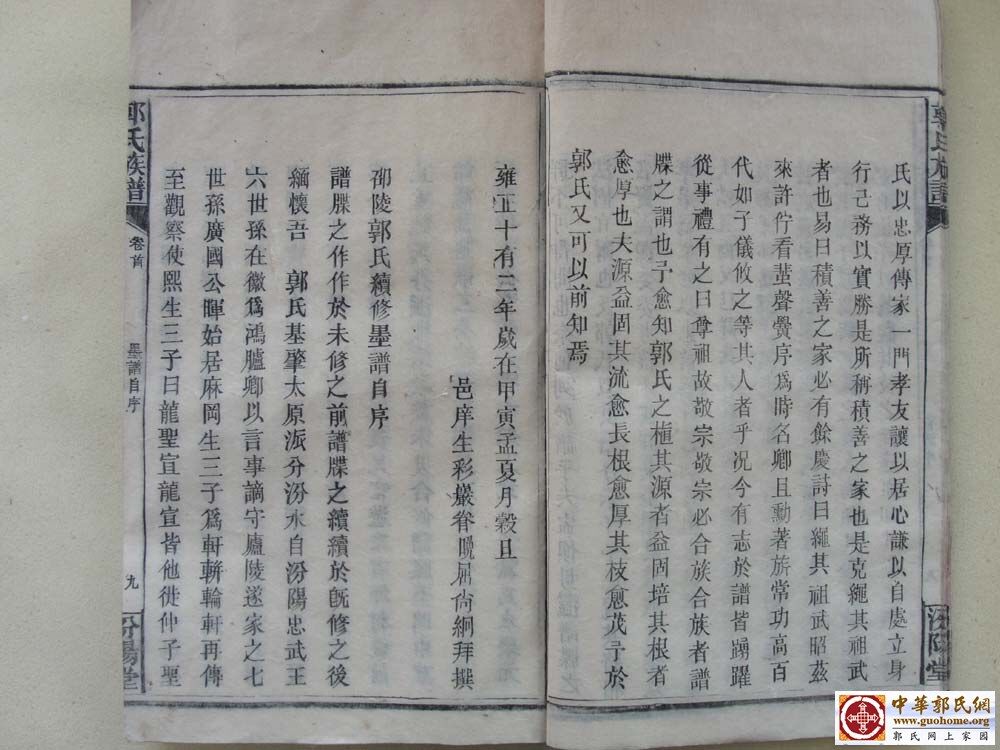 郭氏族譜
汾陽堂
氏以忠厚傳家一門孝友讓以居心謙以自處立身
行己務以實勝是所稱積善之家也是克繩其祖武
者也易曰積善之家必有餘慶詩曰繩其祖武昭茲
來許佇看蜚聲黌序爲時名卿且勳著旂常功高百
代如子儀攸之等其人者乎況今有志於譜皆踴躍
從事禮有之曰尊祖故敬宗敬宗必合族合族者譜
牒之謂也予愈知郭氏之植其源者益固培其根者
愈厚也夫源益固其流愈長根愈厚其枝愈茂予於
郭氏又可以前知焉
雍正十有三年歲在甲寅孟夏月穀旦
邑庠生彩巖眷晚屈尚絅拜撰
邵陵郭氏續修墨譜自序
譜牒之作作於未修之前譜牒之續續於旣修之後
緬懷吾 郭氏基肇太原派分汾水自汾陽忠武王
六世孫在徽爲鴻臚卿以言事謫守廬陵遂家之七
世孫廣國公暉始居麻岡生三子爲軒輧輪軒再傳
至觀察使熙生三子曰龍聖宣龍宣皆他徙仲子聖
郭氏族譜
卷首
墨譜自序
九
汾陽堂
中華郭氏網
www.guohome.org
郭氏网上家園